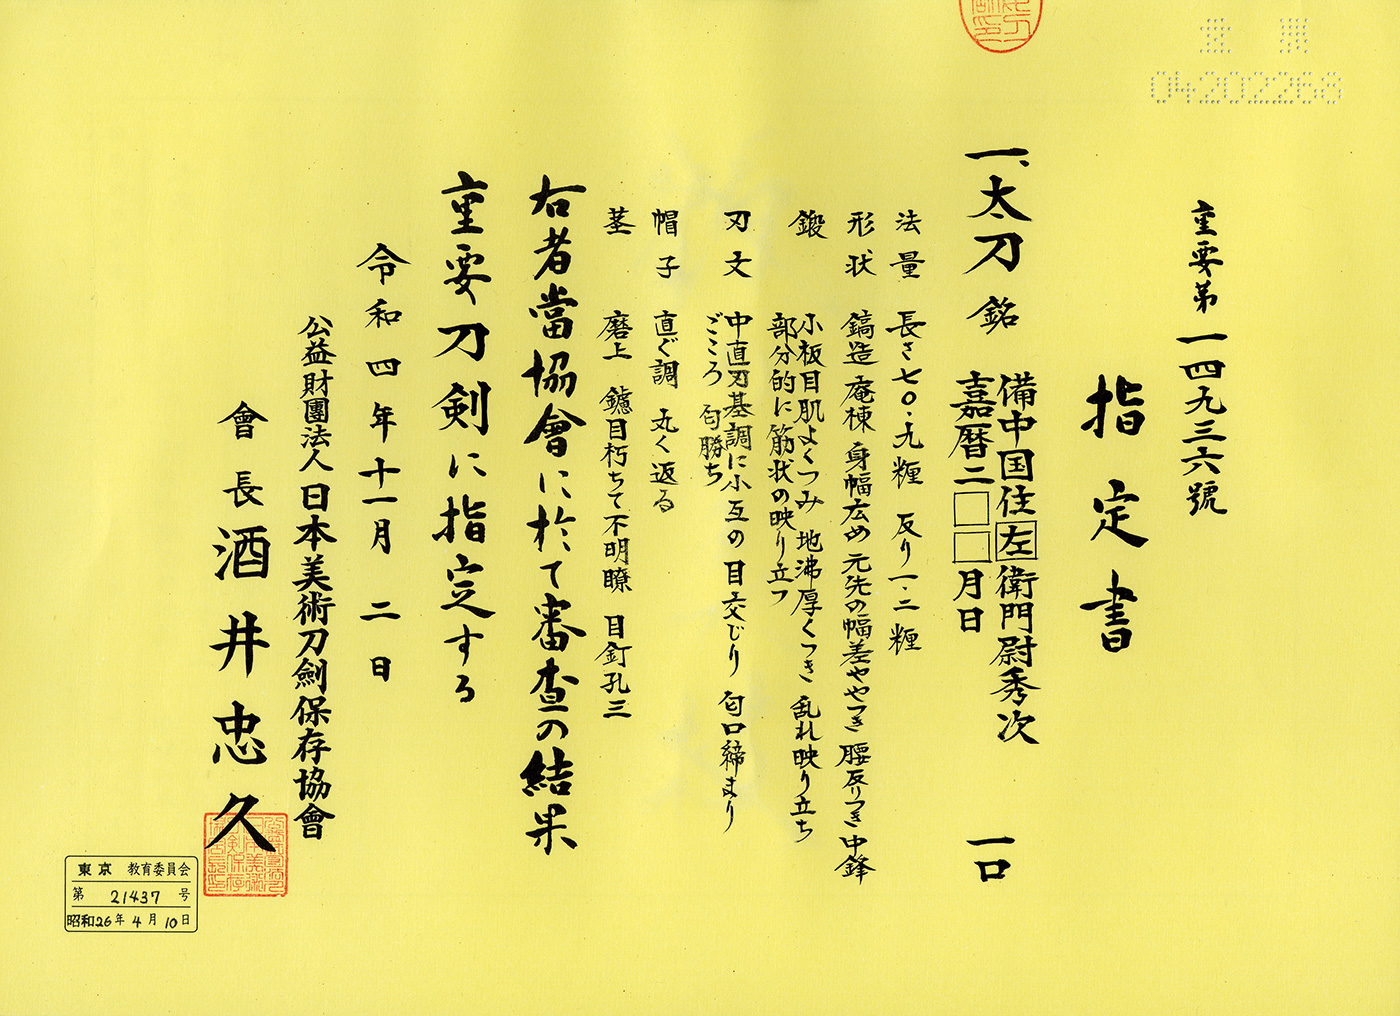 重要第一四九三六號
指定書
一、太刀 銘 備中国住左衛門尉秀次
嘉暦二□□月日
一口
法量 長さ七〇・九糎 反り一・二糎
形状 鎬造 庵棟 身幅広め 元先の幅差ややつき 腰反りつき 中鋒
鍛 小板目肌よくつみ 地沸厚くつき 乱れ映り立ち
部分的に筋状の映り立つ
刃文 中直刃基調に小互の目交じり 匂口締まり
ごころ 匂勝ち
帽子 直ぐ調 丸く返る
茎 磨上 鑢目朽ちて不明瞭 目釘孔三
右者當協會に於て審査の結果
重要刀剣に指定する
令和四年十一月二日
公益財團法人日本美術刀劍保存協會
會長 酒井忠久
東京 教育委員会
第 21437 号
昭和26年4月10日
04202268